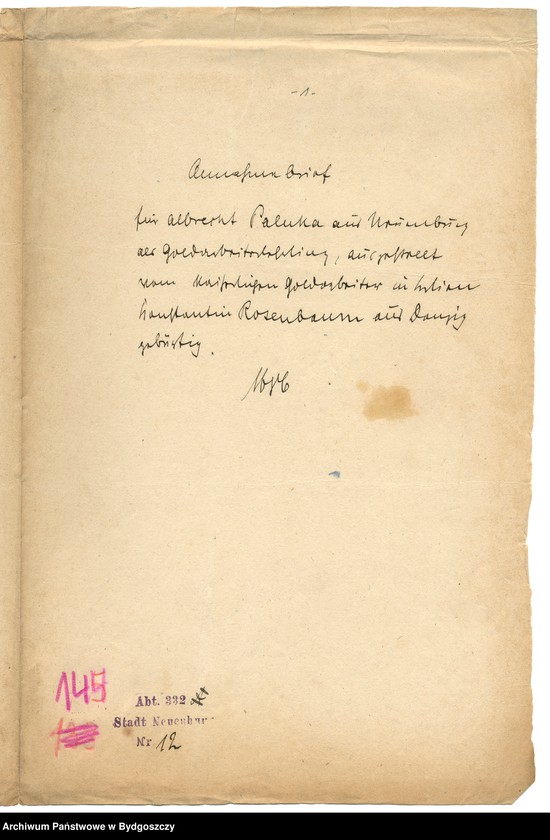 - 1 -
Annahmebrief
für Albrecht Paluka aus Neuenburg
als Goldarbeiterlehrling, ausgestellt
vom Kaiserlichen Goldarbeiter in
Konstantin Rosenbaum aus Danzig
gebürtig.
145
Abt. 332
Stadt Neuenbur
Nr 12
Archiwum Państwowe w Bydgoszczy